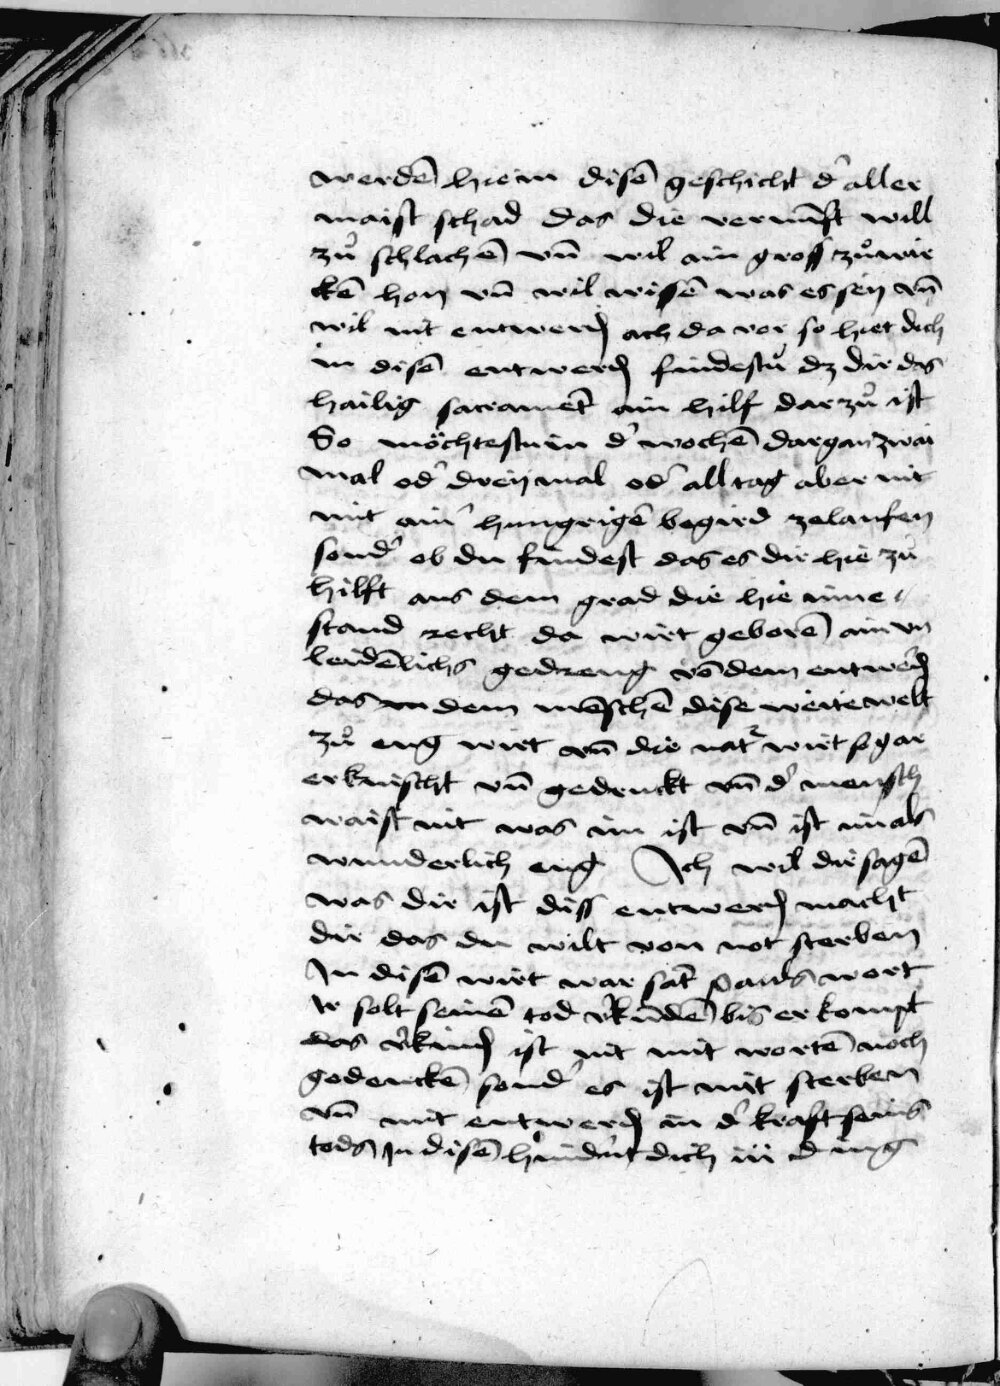 werdē hie in disē geschicht d' aller
maist schad das die vernūft will
zů schlachē vn̄ wil ain gross zůwir
kē hon vn̄ wil wissē was es seÿ vn̄
wil nit entwerdē ach da vor so hiet dich
in disē entwerdē findestu dz dir das
hailig sacramēt ain hilf darzů ist
So möchtestu in d' wochē dargan zwai
mal od' dreÿ mal od' all tag aber nit
mit ain' hungrigē begird zelaufen
sond' ob du findest das es dir hie zů
hilft aus dem grad die hie inne
stand recht da wirt geborē ain vn
leidēlichs gedreng vō dem entwerdē
das dem mēschē dise weite welt
zů eng wirt vn̄ die nat' wirt so gar
erknischt vn̄ gedruckt vn̄ d' mensch
waist nit was im ist vn̄ ist im als
wunderlich eng Ich wil dir sagē
was dir ist diss entwerdē macht
dir das du wilt von not sterben
In disē wirt war sāt pauls wort
Ir solt seinē tod v'kündē bis er kompt
das v'kündē ist nit mit wortē noch
gedenckē sond' es ist mit sterben
vn̄ mit entwerdē in d' kraft seins
tods In disē hind'nt dich iii ding